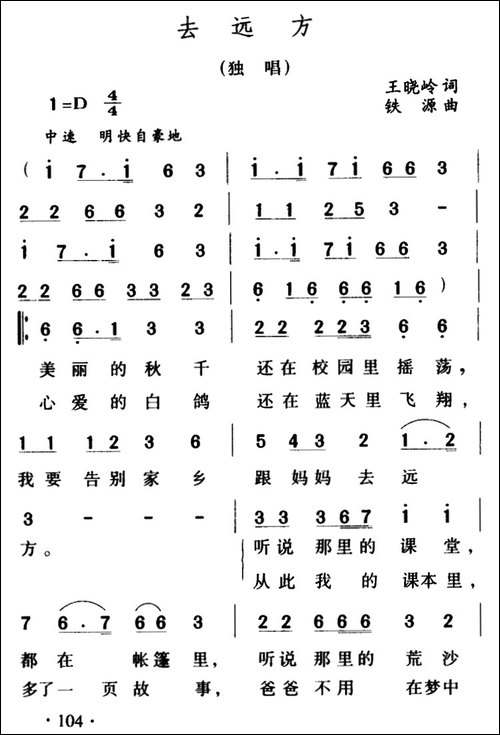 去 远 方
(独 唱)
1=D 4/4
王晓岭 词
铁 源 曲
中速 明快自豪地
( i 7 . i 6 3 | i . i 7 i 6 6 3
2 2 6 6 3 2 | 1 1 2 5 3 -
i 7 . i 6 3 | i . i 7 i 6 6 3
2 2 6 6 3 3 2 3 | 6 1 6 6 6 1 6 )
‖: 6 6 . 1 3 3 | 2 2 2 2 3 6 6
美 丽 的 秋 千 还 在 校 园 里 摇 荡,
心 爱 的 白 鸽 还 在 蓝 天 里 飞 翔,
1 1 1 2 3 6 | 5 4 3 2 1 . 2
我 要 告 别 家 乡 跟 妈 妈 去 远
3 - - - | 3 3 3 6 7 i i
方。 听 说 那 里 的 课 堂,
从 此 我 的 课 本 里,
7 6 . 7 6 6 3 | 2 2 6 6 6 3 2
都 在 帐 篷 里, 听 说 那 里 的 荒 沙
多 了 一 页 故 事, 爸 爸 不 用 在 梦 中
· 104 ·